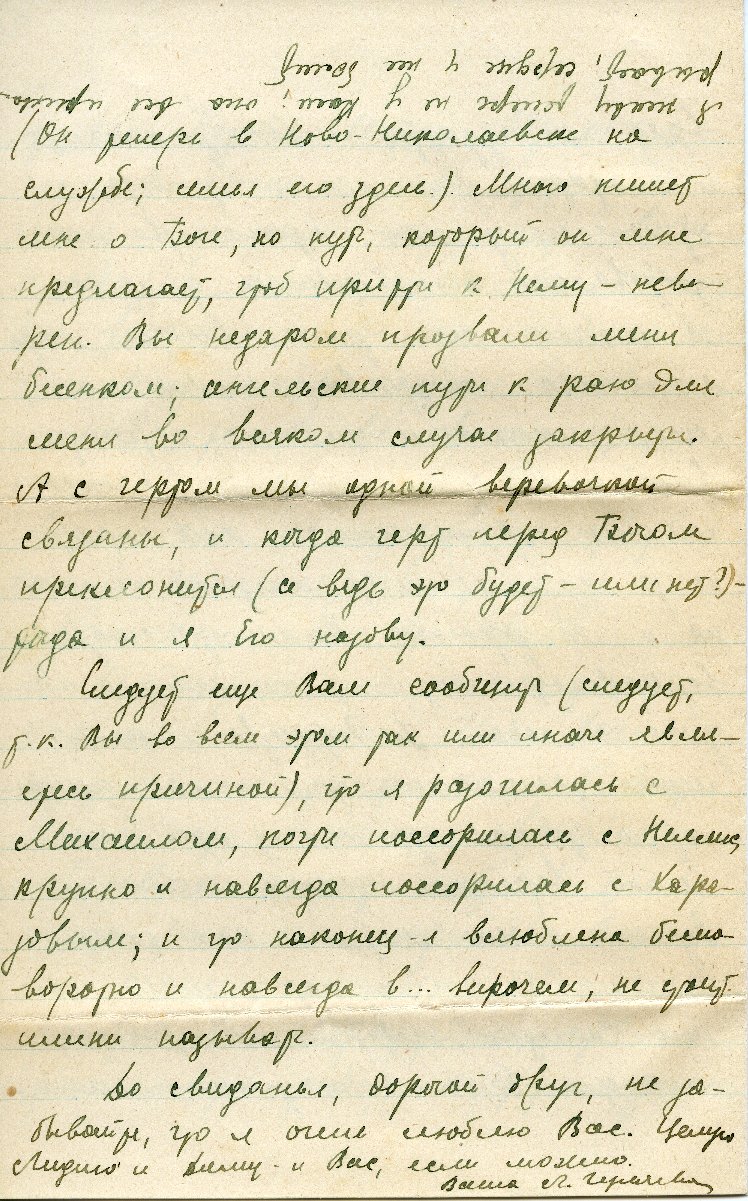 (Он теперь в Ново-Николаевске на
службе; семья его здесь.) Много пишет
мне о Боге, но путь, который он мне
предлагает, чтоб придти к Нему – неве-
рен. Вы недаром прозвали меня
бесенком; ангельские пути к раю для
меня во всяком случае закрыты.
А с чертом мы одной веревочкой
связаны, и когда черт перед Богом
преклонится (а ведь это будет – или нет?) –
тогда и я Его назову.
Следует еще Вам сообщить (следует,
т.к. Вы во всем этом так или иначе явля-
етесь причиной), что я разошлась с
Михаилом, почти поссорилась с
крупно и навсегда поссорилась с Кара-
зовым; и что наконец я влюблена беспо-
воротно и навсегда в... впрочем, не стоит
имени называть.
До свиданья, дорогой друг, не за-
бывайте, что я очень люблю Вас. Целую
Лидию и Дему и Вас, если можно.
Ваша